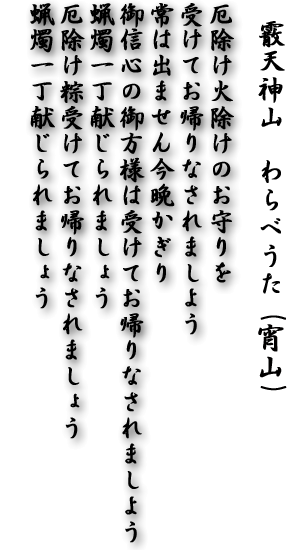 霰天神山　わらべうた（宵山）
厄除け火除けのお守りを
受けてお帰りなされましよう
常は出ません今晩かぎり
御信心の御方様は受けてお帰りなされましよう
蝋燭一丁献じられましょう
厄除け粽受けてお帰りなされましょう
蝋燭一丁献じられましょう